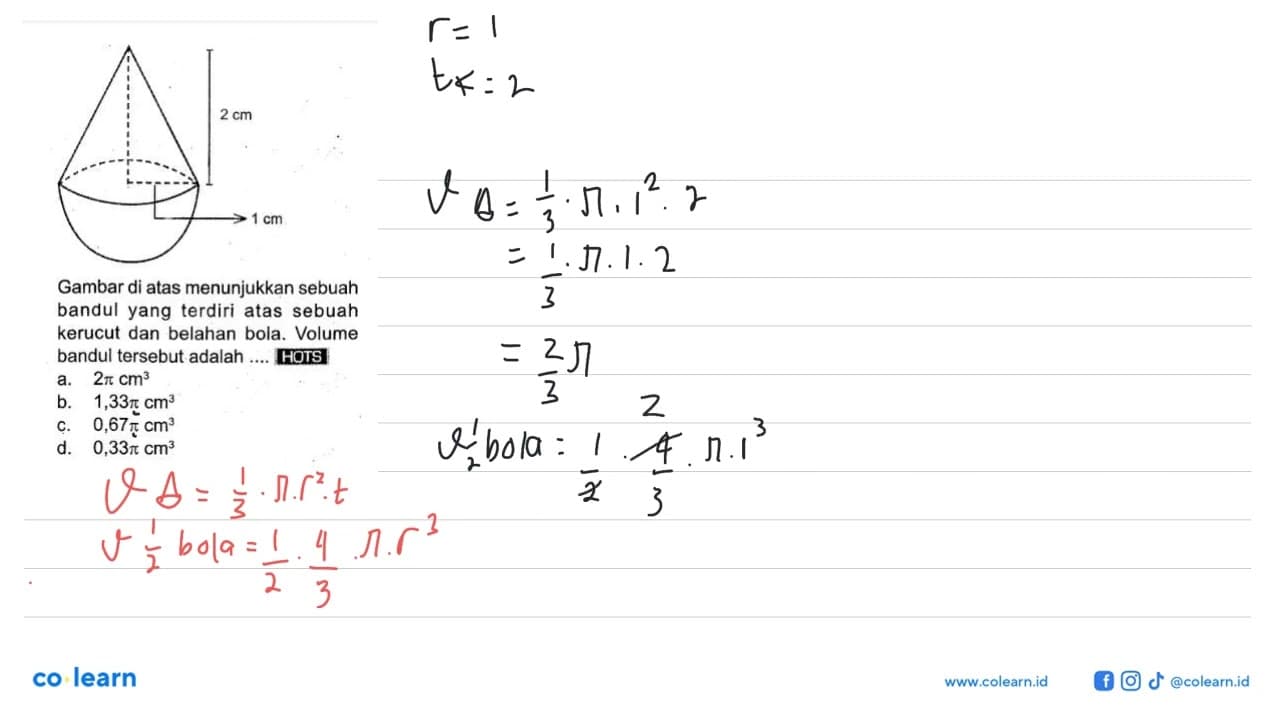 2 cm
1 cm
Gambar di atas menunjukkan sebuah
bandul yang terdiri atas sebuah
kerucut dan belahan bola. Volume
bandul tersebut adalah .... HOTS
a. 2π cm³
b. 1,33π cm³
c. 0,67π cm³
d. 0,33π cm³
V Δ = 1/3 . π . r² . t
V 1/2 bola = 1/2 . 4/3 . π . r³
r = 1
tK = 2
V Δ = 1/3 . π . 1² . 2
= 1/3 . π . 1 . 2
= 2/3 π
2
V 1/2 bola = 1/2 . 4/3 . π . 1³
co learn
www.colearn.id
@colearn.id